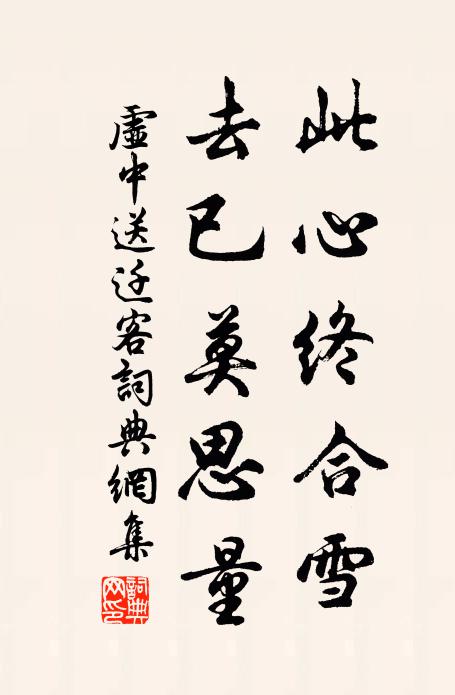 此心终合雪
去已莫思量
虚中送迁客詞典網集
詞典
网印